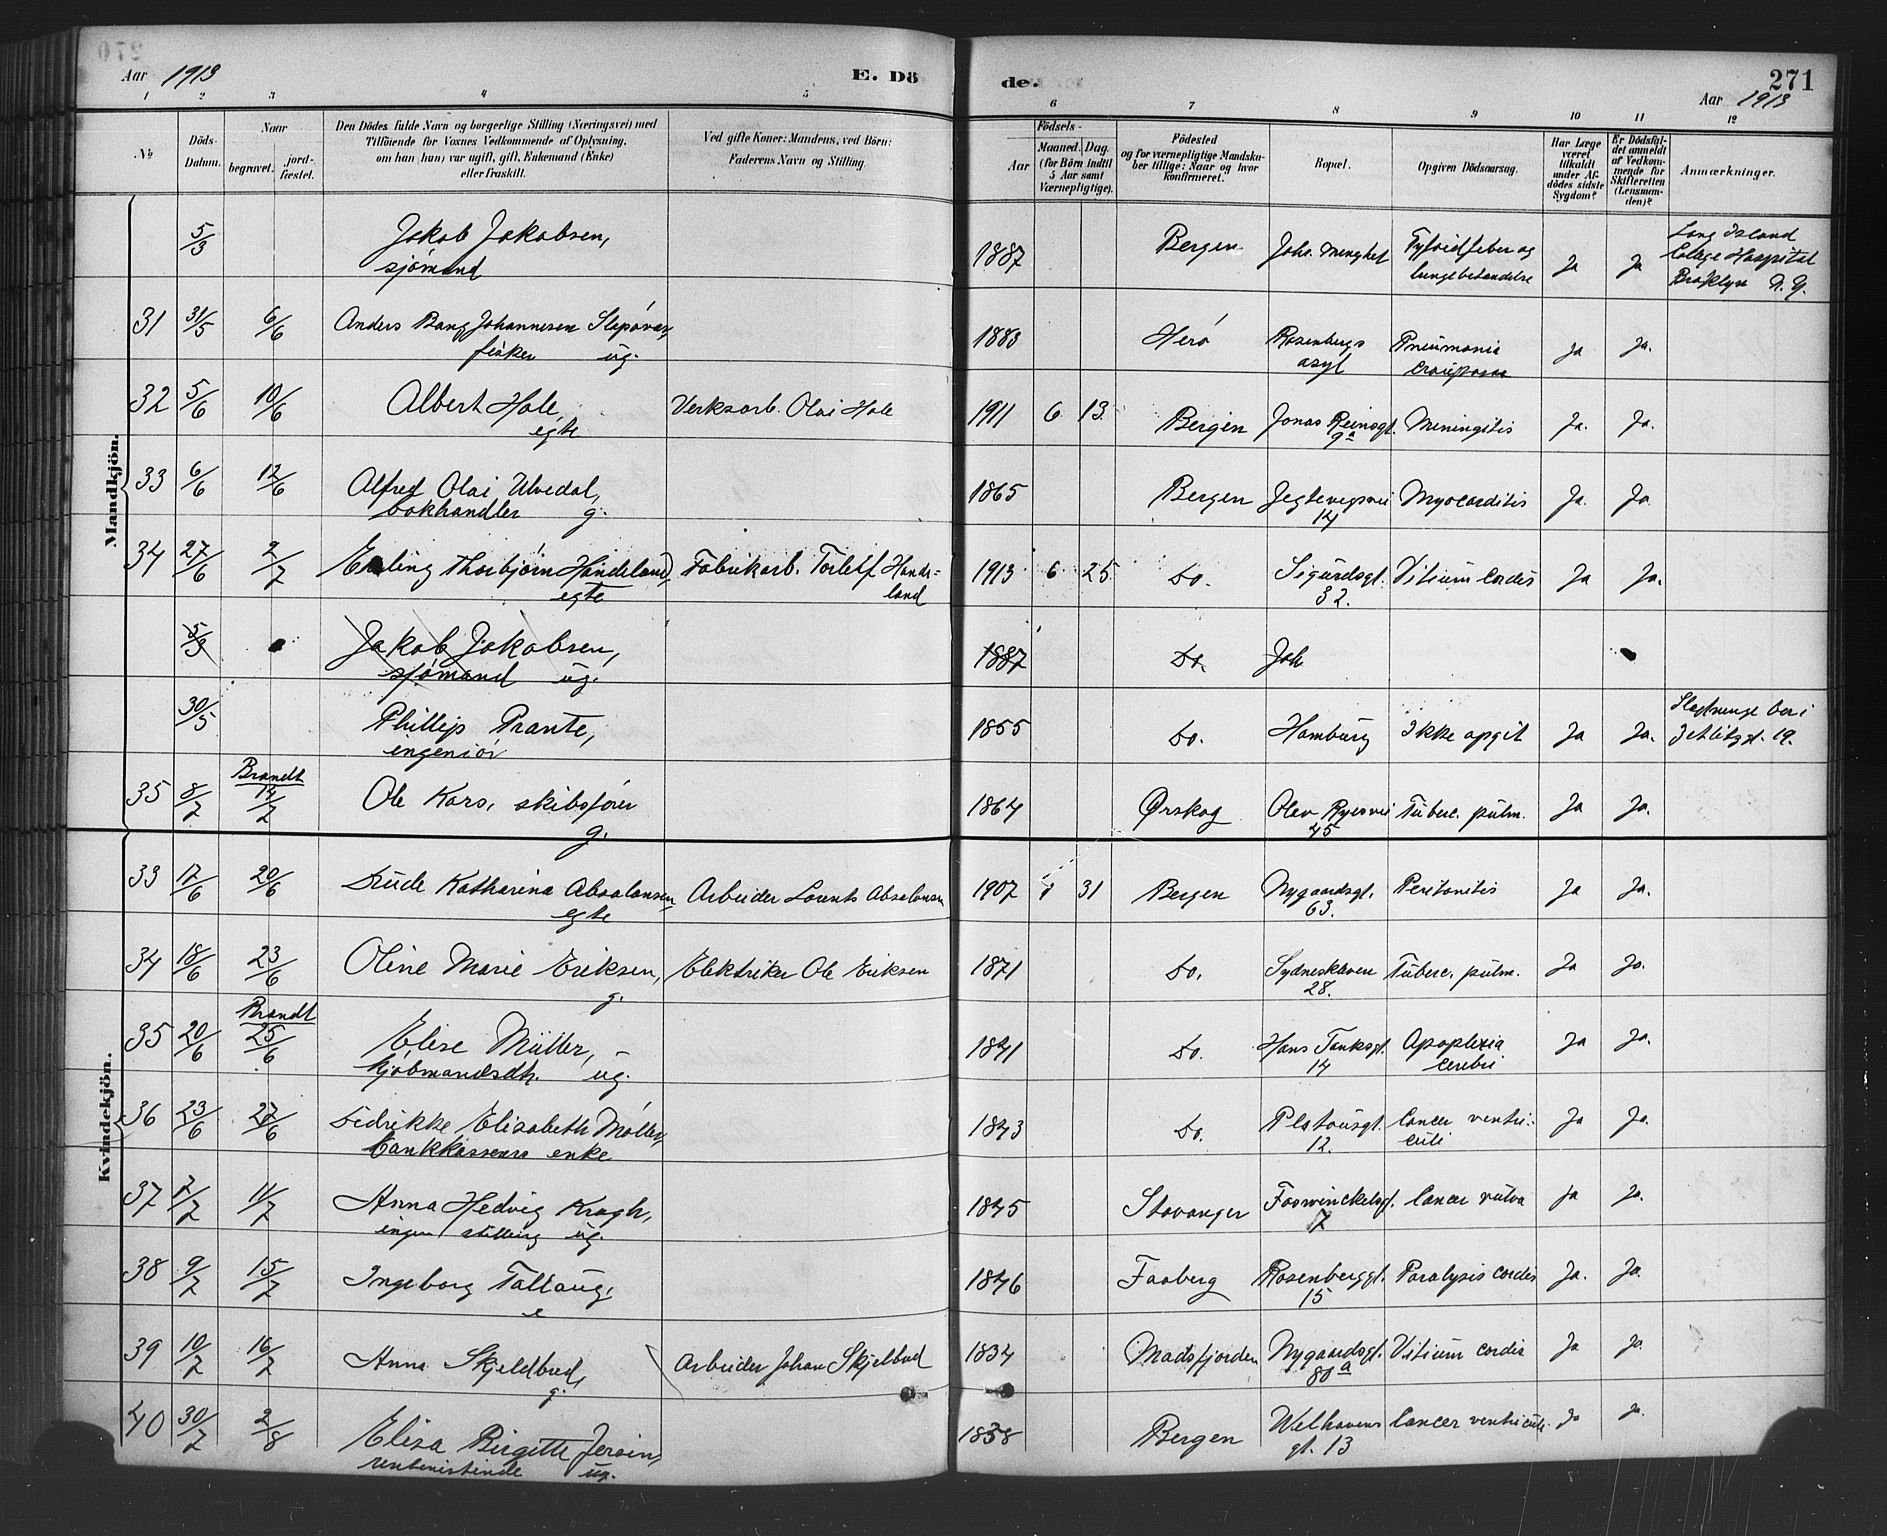 Aar 1913
E. Dö
de.
271
Aar 1913
1 2 3 4 5 6 7 8 9 10 11 12
No
Döds-Datum.
Naar
begravet.
jord-fæstet.
Den Dödes fulde Navn og borgerlige Stilling (Næringsvei) med
Tilföiende for Voxnes Vedkommende af Oplysning,
om han (hun) var ugift, gift, Enkemand (Enke)
eller fraskilt.
Ved gifte Koner: Mandens, ved Börn:
Faderens Navn og Stilling.
Födsels-
Aar
Maaned. Dag.
(for Börn indtil
5 Aar samt
Værnepligtige).
Födested
og for værnepligtige Mandska-
ber tillige: Naar og hvor
konfirmeret.
Bopæl.
Opgiven Dödsaarsag.
Har Læge
været
tilkaldt
under Af-
dödes sidste
Sygdom?
Er Dödsfal-
det anmeldt
af Vedkom-
mende for
Skifteretten
(Lensman-
den)?
Anmærkninger.
Mandkjön.
5/3 Jakob Jakobsen, 1887 Bergen Joh. Tyfoidfeber og Ja Ja Long Island
sjömand College Hospital
Brooklyn N. Y.
31 31/5 6/6 Anders Bang Johannesen 1883 Herö Rosenbergs Pneumonia Ja Ja.
fisker ug. asyl crouposa
32 5/6 10/6 Albert Hole, Verksarb. Olai Hole 1911 6 13. Bergen Jonas Reinsgt. Meningitis Ja. Ja.
egte 9a
33 6/6 12/6 Alfred Olai Ulvedal, 1865 Bergen 14 Myocarditis Ja. Ja
bokhandler g.
34 27/6 2/7 Erling Thorbjörn Handeland, Fabrikarb. Torleif Hande- 1913 6 25. Do. Sigurdsgt. Vitium cordis Ja Ja.
egte land 32.
5/3 Jakob Jakobsen, 1887 Do. Joh
sjömand ug.
30/5 Phillip Prante, 1855 Do. Hamburg Ikke opgit Ja Ja.
ingeniör 19.
35 8/7 Brandt 14/7 Ole Kors, skibsförer 1864 Ørskog Olav Ryesvei Tuberc. pulm. Ja Ja.
g. 45
Kvindekjön.
33 17/6 20/6 Drude Katharina Absalonsen, Arbeider Lorents Absalonsen 1907 1 31 Bergen Nygaardsgt. Peritonitis Ja Ja.
egte 63.
34 18/6 23/6 Oline Marie Eriksen, Elektriker Ole Eriksen 1871 Do. Sydneskleven Tuberc. pulm. Ja Ja.
g. 28.
35 20/6 Brandt 25/6 Elise Müller, 1841 Do. Hans Tanksgt. Apoplexia Ja Ja.
kjöbmandsdt. ug. 14 cerebri
36 23/6 27/6 Didrikke Elisabeth Möller, 1843 Do. Platousgt. Cancer ventri- Ja Ja.
bankkasseres enke 12. culi
37 7/7 11/7 Anna Hedvig Kragh, 1845 Stavanger Foswinckelsgt. Cancer vulva Ja Ja.
ingen stilling ug. 7
38 9/7 15/7 Ingeborg Taltaug, 1846 Faaberg Rosenberggt. Paralysis cordis Ja. Ja.
e 15
39 10/7 16/7 Anna Skjeldbred, Arbeider Johan Skjelbred 1834 Madsfjorden Nygaardsgt. Vitium cordis Ja Ja.
g. 80a
40 30/7 2/8 Elisa Birgitte 1838 Bergen Welhavens Cancer ventriculi. Ja Ja.
rentenistinde ug. gt. 13